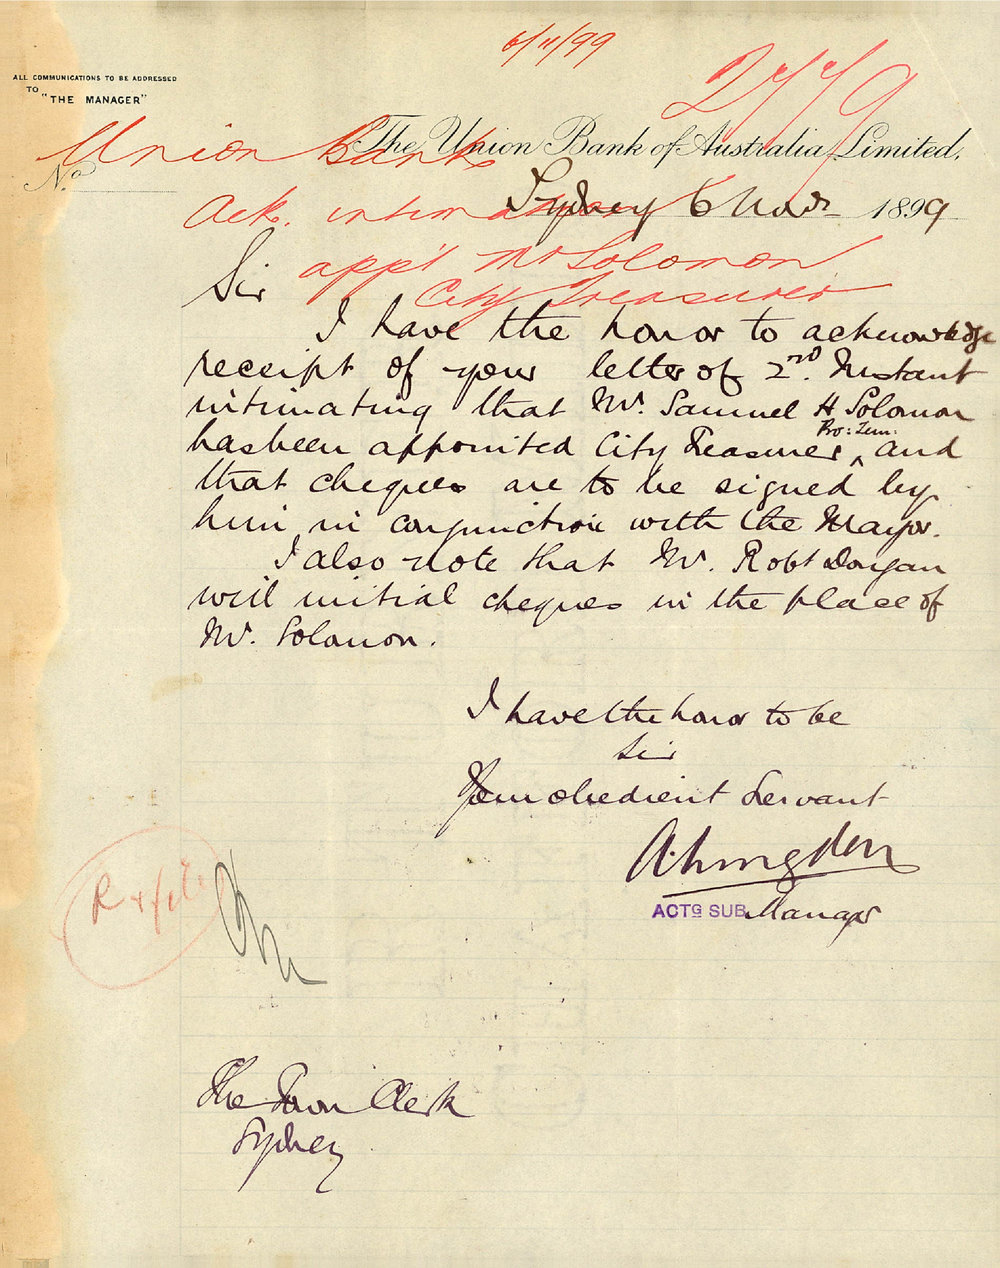 6/11/99
2779
ALL COMMUNICATIONS TO BE ADDRESSED
TO
"THE MANAGER"
The Union Bank of Australia Limited.
Union Bank
No.
Sydney 6 Novr 1899
Ack. intimating
appt Mr Solomon
City Treasurer
Sir
I have the honor to acknowledge
receipt of your letter of 2nd. Instant
intimating that Mr. Samuel H Solomon
has been appointed City Treasurer Pro: Tem: and
that cheques are to be signed by
him in conjunction with the Mayor.
I also note that Mr. Robt Dorgan
will initial cheques in the place of
Mr. Solomon.
I have the honor to be
Sir
Your obedient Servant
ACTG SUB Manager
R & file
The Town Clerk
Sydney